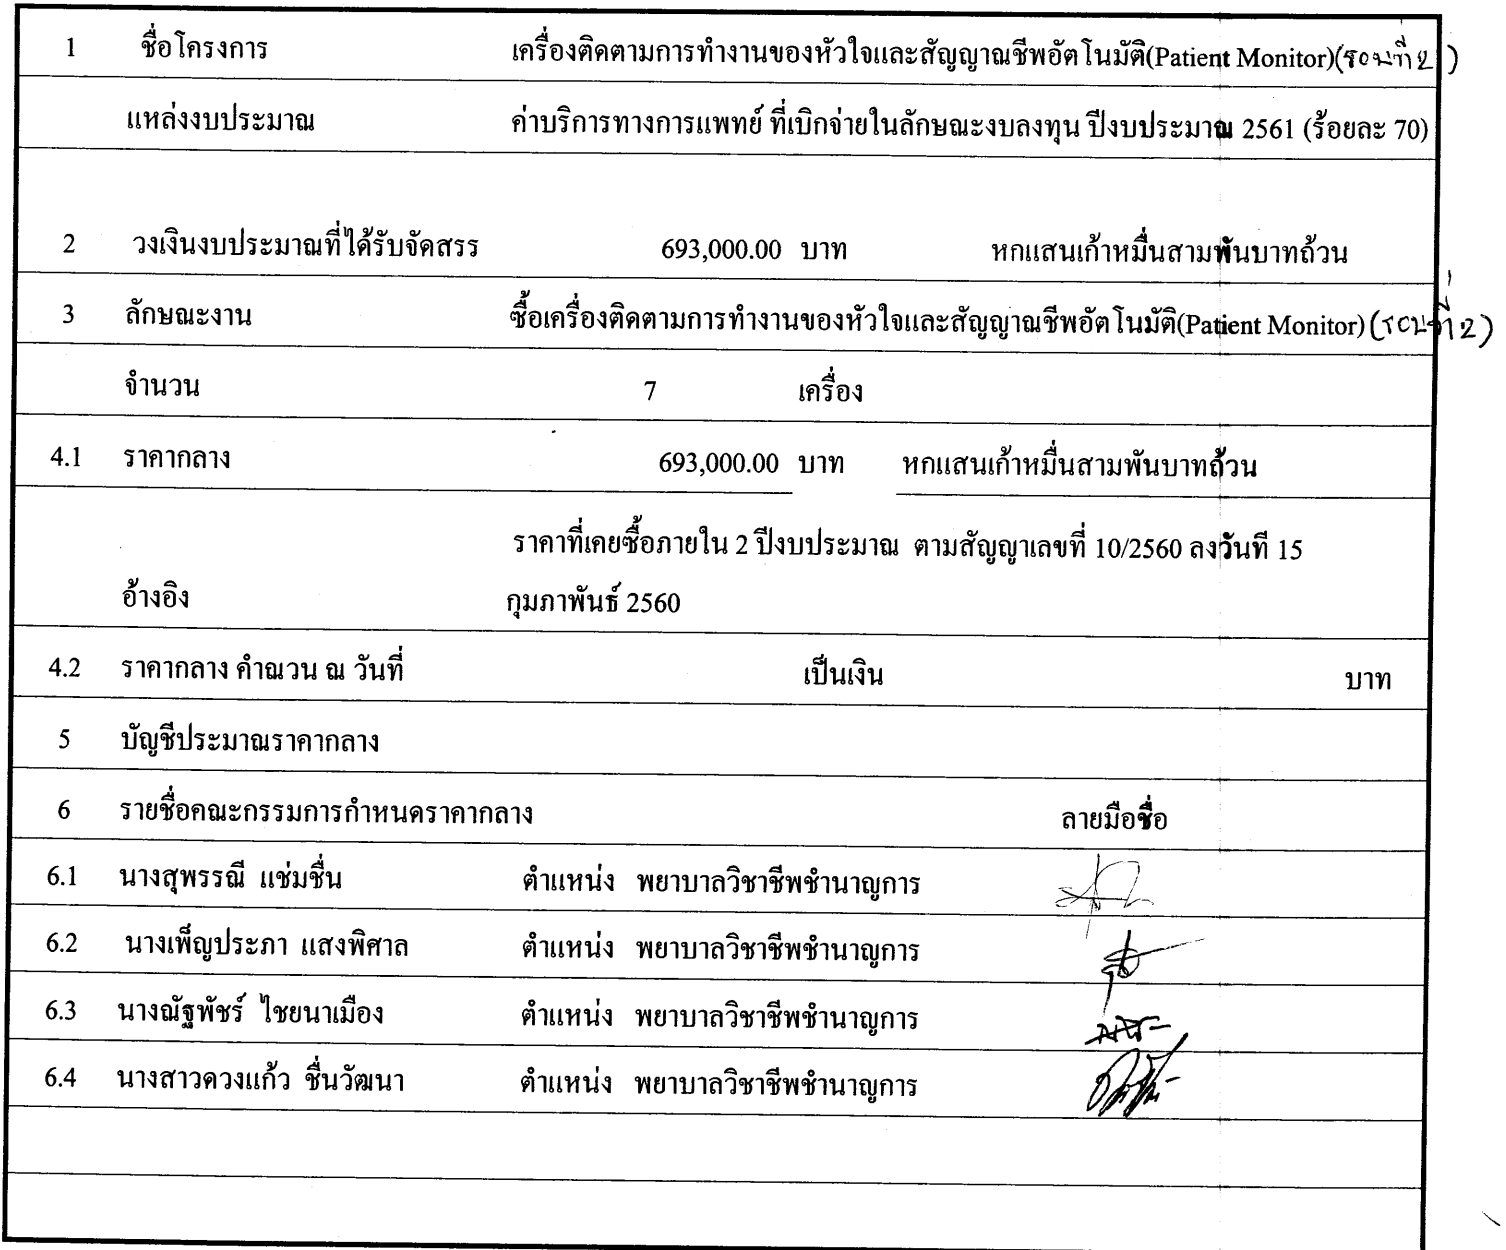 1 ชื่อโครงการ เครื่องติดตามการทำงานของหัวใจและสัญญาณชีพอัตโนมัติ(Patient Monitor)(รอบที่2)
แหล่งงบประมาณ ค่าบริการทางการแพทย์ ที่เบิกจ่ายในลักษณะงบลงทุน ปีงบประมาณ 2561 (ร้อยละ 70)
2 วงเงินงบประมาณที่ได้รับจัดสรร 693,000.00 บาท หกแสนเก้าหมื่นสามพันบาทถ้วน
3 ลักษณะงาน ซื้อเครื่องติดตามการทำงานของหัวใจและสัญญาณชีพอัตโนมัติ(Patient Monitor) (รอบที่2)
จำนวน 7 เครื่อง
4.1 ราคากลาง 693,000.00 บาท หกแสนเก้าหมื่นสามพันบาทถ้วน
ราคาที่เคยซื้อภายใน 2 ปีงบประมาณ ตามสัญญาเลขที่ 10/2560 ลงวันที่ 15
อ้างอิง กุมภาพันธ์ 2560
4.2 ราคากลาง คำณวน ณ วันที่ เป็นเงิน บาท
5 บัญชีประมาณราคากลาง
6 รายชื่อคณะกรรมการกำหนดราคากลาง ลายมือชื่อ
6.1 นางสุพรรณี แช่มชื่น ตำแหน่ง พยาบาลวิชาชีพชำนาญการ
6.2 นางเพ็ญประภา แสงพิศาล ตำแหน่ง พยาบาลวิชาชีพชำนาญการ
6.3 นางณัฐพัชร์ ไชยนาเมือง ตำแหน่ง พยาบาลวิชาชีพชำนาญการ
6.4 นางสาวดวงแก้ว ชื่นวัฒนา ตำแหน่ง พยาบาลวิชาชีพชำนาญการ